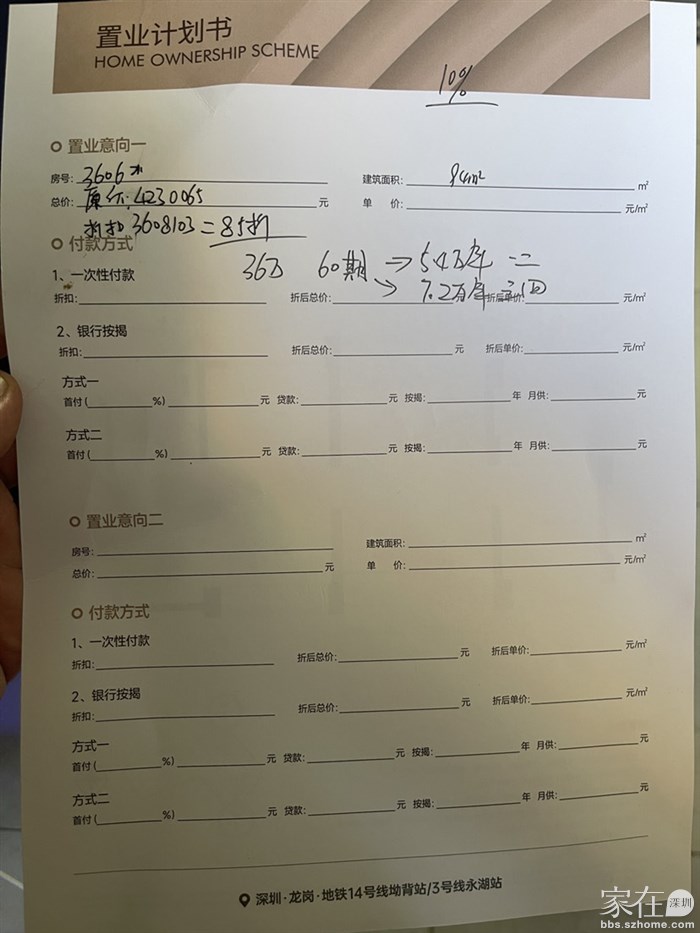 置业计划书
HOME OWNERSHIP SCHEME
10%
置业意向一
房号: 3606 建筑面积: m²
总价: 原价: 4230065 元 单 价: 元/m²
折扣 3608103 = 85折
付款方式
36万 60期 → 5.4万/年 一二
1、一次性付款
→ 7.2万/年 三四
折扣: 折后总价: 元 折后单价: 元/m²
2、银行按揭
折扣: 折后总价: 元 折后单价: 元/m²
方式一
首付 ( %) 元 贷款: 元 按揭: 年 月供: 元
方式二
首付 ( %) 元 贷款: 元 按揭: 年 月供: 元
置业意向二
房号: 建筑面积: m²
总价: 元 单 价: 元/m²
付款方式
1、一次性付款
折扣: 折后总价: 元 折后单价: 元/m²
2、银行按揭
折扣: 折后总价: 元 折后单价: 元/m²
方式一
首付 ( %) 元 贷款: 元 按揭: 年 月供: 元
方式二
首付 ( %) 元 贷款: 元 按揭: 年 月供: 元
深圳·龙岗·地铁14号线坳背站/3号线永湖站
家在深圳
bbs.szhome.com